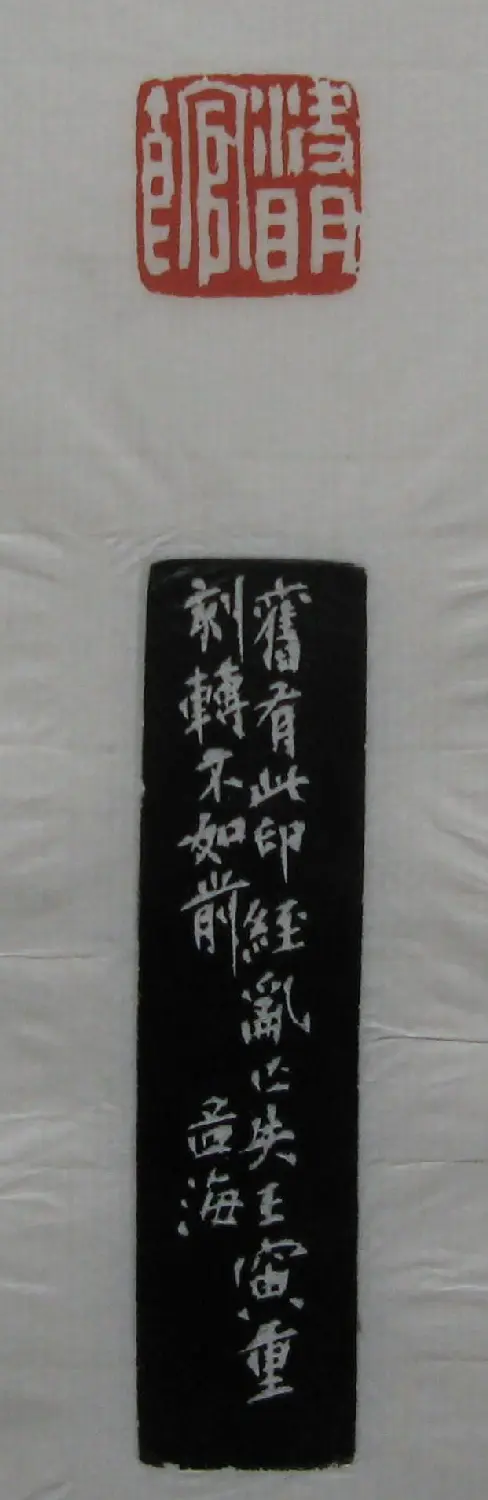 館
舊有此印經亂亡失壬寅重
刻轉不如前
海